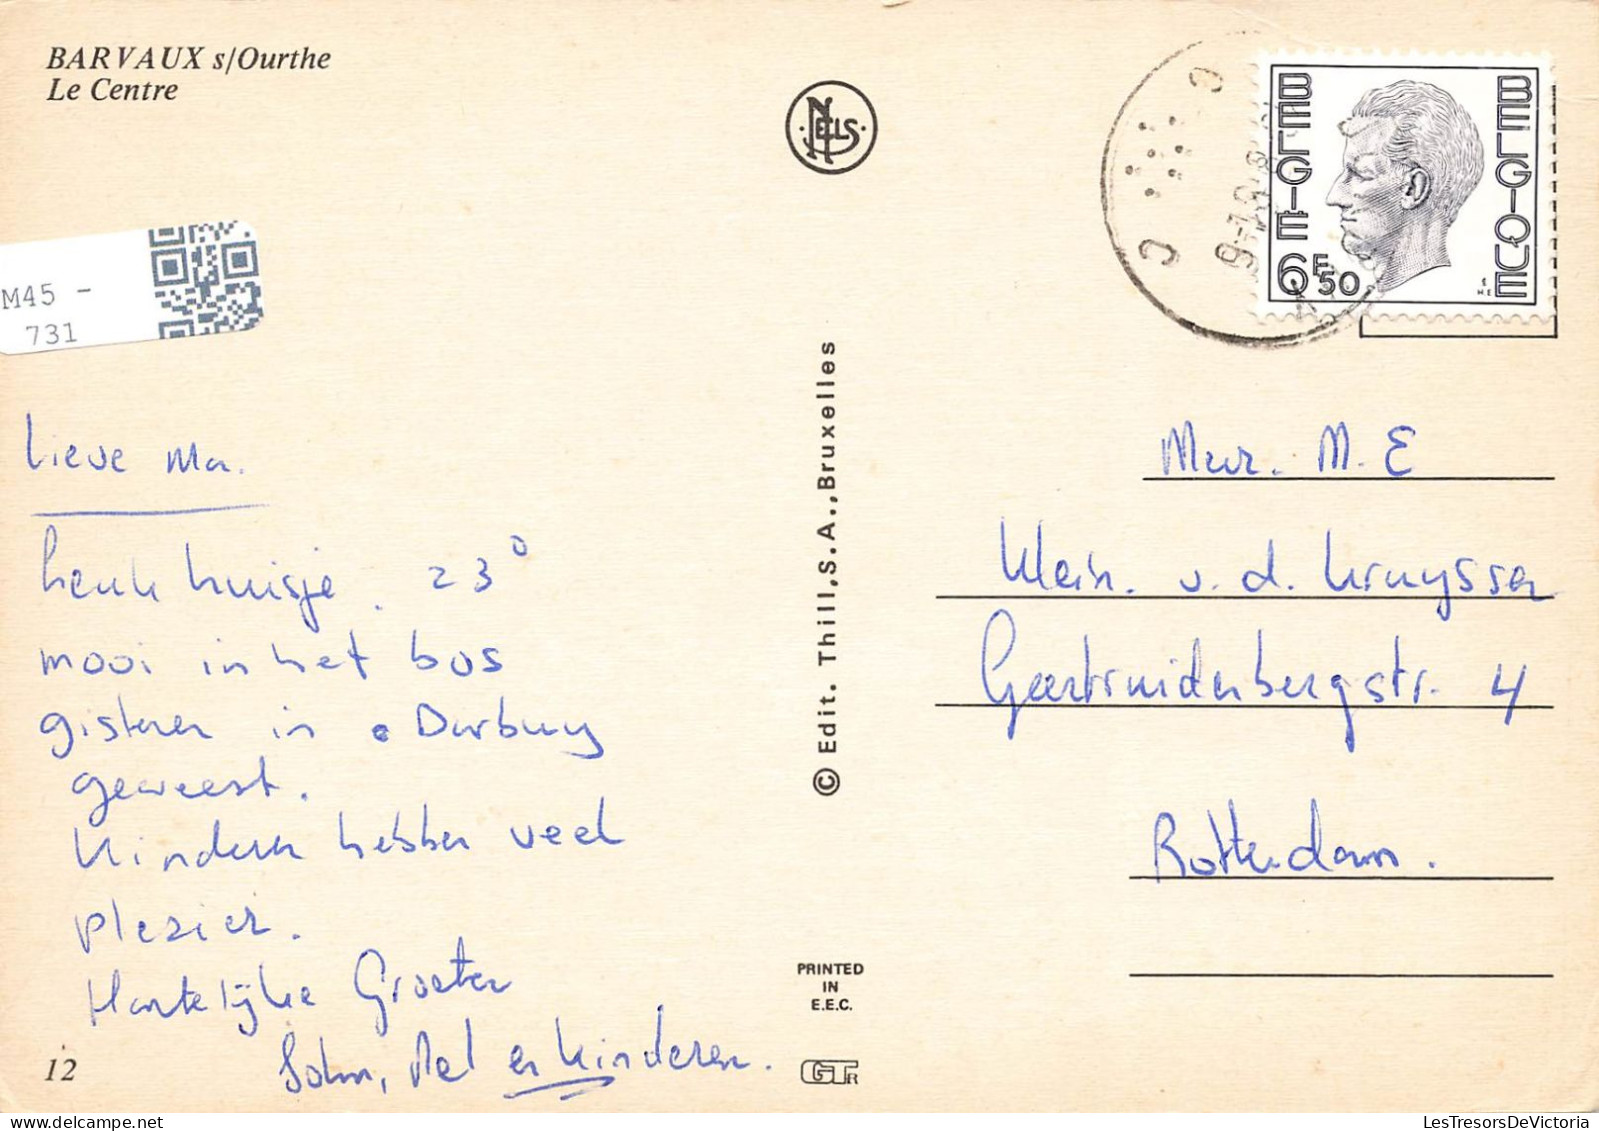 BARVAUX s/Ourthe
Le Centre
NELS
BELGIE
BELGIQUE
6F50
M45 -
731
© Edit. Thill, S.A., Bruxelles
Lieve Ma.
Leuk huisje. 23°
mooi in het bos
gisteren in Durbuy
geweest.
Kinderen hebben veel
plezier.
Hartelijke Groeten
en kinderen.
Mevr. M. E
Klein. v. d. Kruyssen
Geertruidenbergstr. 4
Rotterdam.
PRINTED
IN
E.E.C.
12
LesTresorsDeVictoria